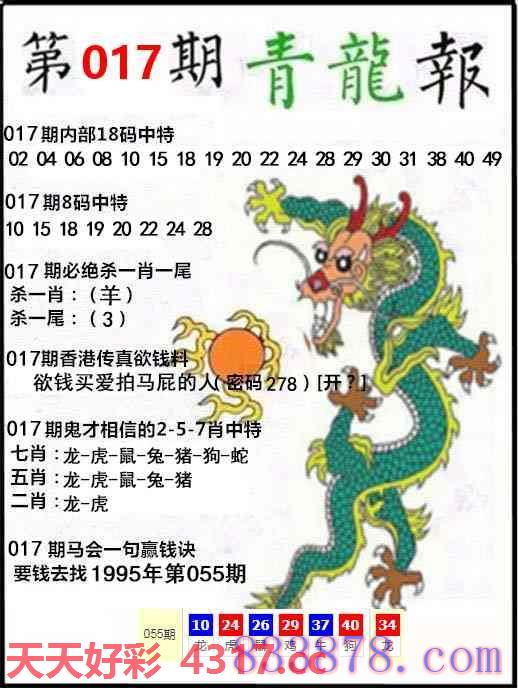 第017期青龍報
017期内部18码中特
02 04 06 08 10 15 18 19 20 22 24 28 29 30 31 38 40 49
017期8码中特
10 15 18 19 20 22 24 28
017期必绝杀一肖一尾
杀一肖：（羊）
杀一尾：（3）
017期香港传真欲钱料
欲钱买爱拍马屁的人（密码278）[开？]
017期鬼才相信的2-5-7肖中特
七肖：龙-虎-鼠-兔-猪-狗-蛇
五肖：龙-虎-鼠-兔-猪
二肖：龙-虎
017期马会一句赢钱诀
要钱去找1995年第055期
055期 10 24 26 29 37 40 34
龙 虎 鼠 鸡 牛 狗 龙
天天好彩 4317.cc
838878.com